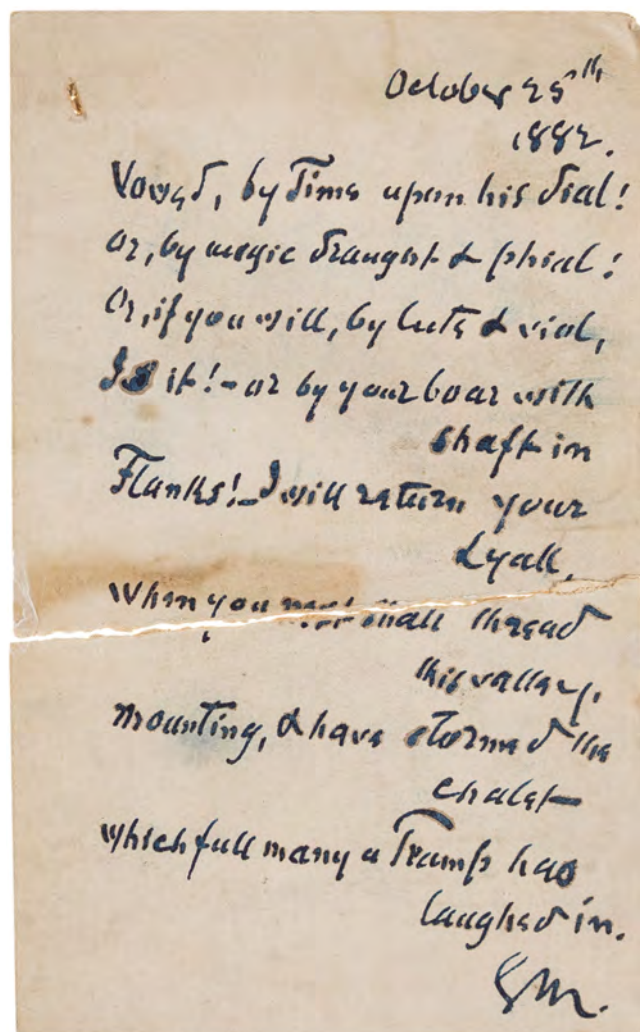 October 25th
1882.
Vowed, by Time upon his dial!
Or, by magic draught & phial!
Or, if you will, by lute & viol,
it! – or by your boar with
shaft in
Flanks! – I will return your
Lyall,
When you next shall thread
this valley,
mounting, & have stormed the
chalet
which full many a Tramp has
laughed in.
GM.